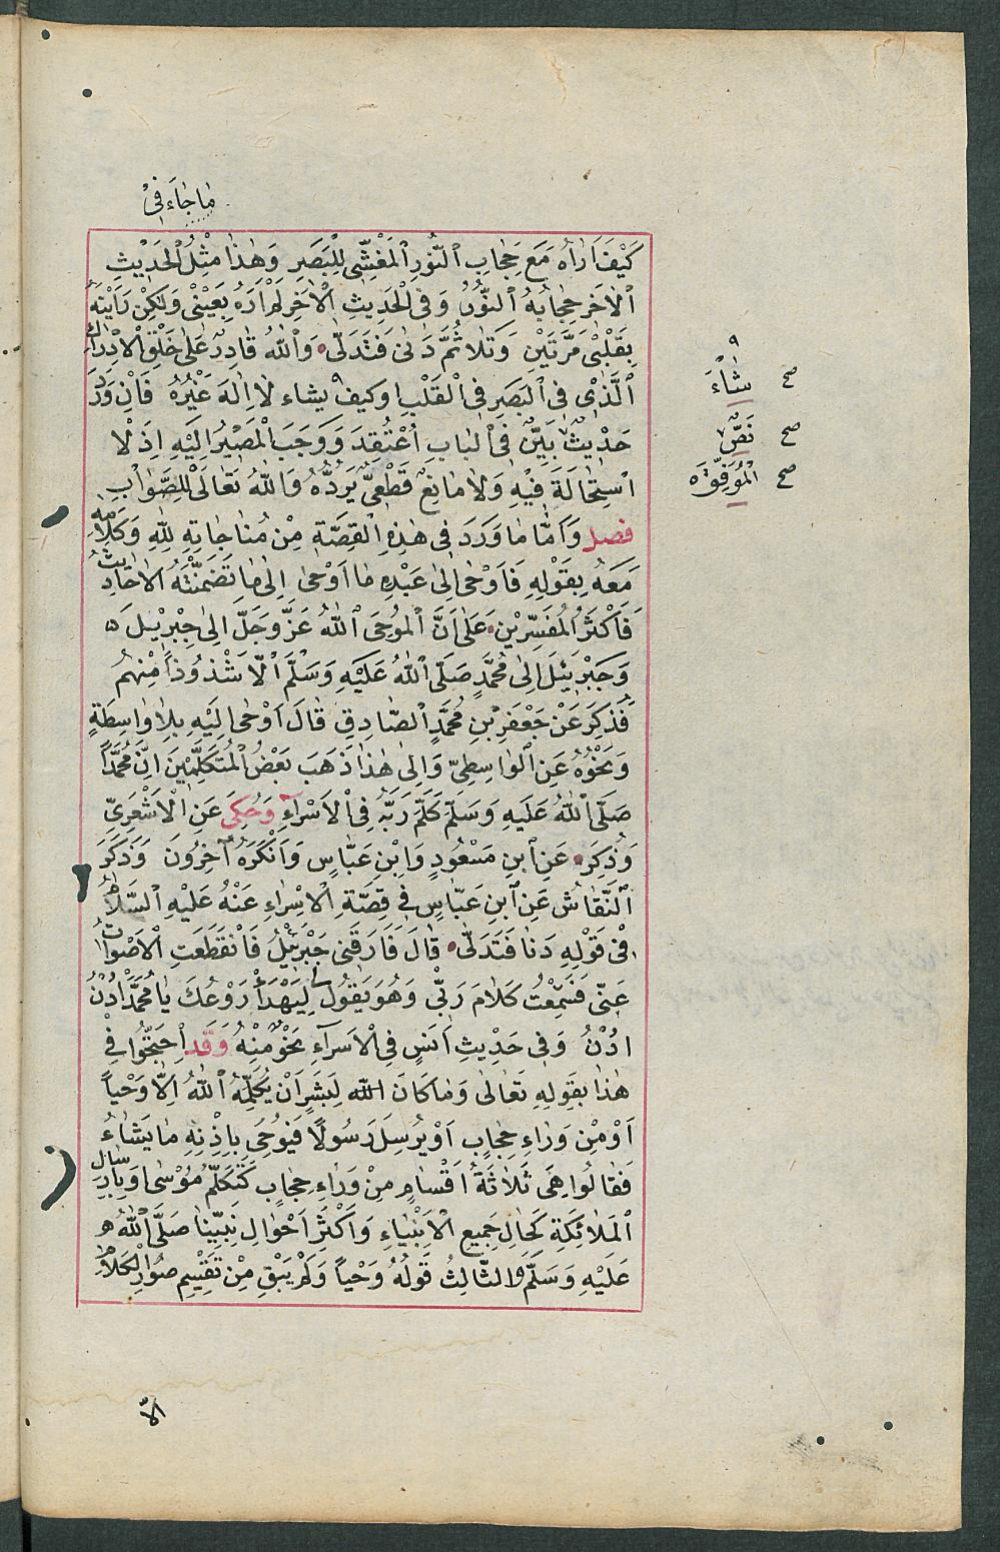 مَا جَاءَ فِى
كَيْفَ اَرَاهُ مَعَ حِجَابِ ٱلنُّورِ ٱلْمُغَشِّى لِلْبَصَرِ وَهٰذَا مِثْلُ ٱلْحَدِيْثِ
ٱلْاٰخَرِ حِجَابُهُ ٱلنُّوْرُ وَفِى ٱلْحَدِيثِ ٱلْاٰخَرِ لَمْ اَرَهُ بِعَيْنِىْ وَلٰكِنْ رَاَيْتُهُ
بِقَلْبِىْ مَرَّتَيْنِ وَتَلَا ثُمَّ دَنٰى فَتَدَلّٰى وَٱللهُ قَادِرٌ عَلٰى خَلْقِ ٱلْاِدْرَاكِ
ٱلَّذِىْ فِى ٱلْبَصَرِ فِى ٱلْقَلْبِ اوكيف يشاء لَا اِلٰهَ غَيْرُهُ فَاِنْ وَرَدَ
حَدِيْثٌ بَيِّنٌ فِى ٱلْبَابِ اُعْتُقِدَ وَوَجَبَ ٱلْمَصِيْرُ اِلَيْهِ اِذْ لَا
اسْتِحَالَةَ فِيْهِ وَلَا مَانِعَ قَطْعِىٌّ يَرُدُّهُ وَاللهُ تَعَالٰى لِلصَّوَابِ
فصل وَاَمَّا مَا وَرَدَ فِى هٰذِهِ ٱلْقِصَّةِ مِنْ مُنَاجَاتِهِ لِلّٰهِ وَكَلَامِهِ
مَعَهُ بِقَوْلِهِ فَاَوْحٰى اِلٰى عَبْدِهِ مَا اَوْحٰى اِلٰى مَا تَضَمَّنَتْهُ الْاَحَادِيْثُ
فَاَكْثَرُ ٱلْمُفَسِّرِيْنَ عَلٰى اَنَّ ٱلْمُوْحِىَ ٱللهُ عَزَّ وَجَلَّ اِلٰى جِبْرِيْلَ
وَجَبْرَئِيْلَ اِلٰى مُحَمَّدٍ صَلَّى ٱللهُ عَلَيْهِ وَسَلَّمَ اِلَّا شُذُوْذًا مِنْهُمْ
فَذُكِرَ عَنْ جَعْفَرِ بْنِ مُحَمَّدٍ ٱلصَّادِقِ قَالَ اَوْحٰى اِلَيْهِ بِلَا وَاسِطَةٍ
وَنَحْوُهُ عَنِ ٱلْوَاسِطِىِّ وَاِلٰى هٰذَا ذَهَبَ بَعْضُ ٱلْمُتَكَلِّمِيْنَ اِنَّ مُحَمَّدًا
صَلَّى ٱللهُ عَلَيهِ وَسَلَّمَ كَلَّمَ رَبَّهُ فِى ٱلْاَسْرَآءِ وَحُكِىَ عَنِ ٱلْاَشْعَرِىِّ
وَذُكِرَ عَنِ ٱبْنِ مَسْعُودٍ وَابْنِ عَبَّاسٍ وَاَنْكَرَهُ آخِرُونَ وَذَكَرَ
ٱلنَّقَاشُ عَنِ ٱبْنِ عَبَّاسٍ فِى قِصَّةِ ٱلْاِسْرَاءِ عَنْهُ عَلَيْهِ ٱلسَّلَامُ
فِىْ قَوْلِهِ دَنَا فَتَدَلّٰى قَالَ فَارَقَنِى جَبْرَئِيْلُ فَانْقَطَعَتِ ٱلْاَصْوَاتُ
عَنِّى فَسَمِعْتُ كَلَامَ رَبِّى وَهُوَ يَقُولُ لِيَهْدَأْ رَوْعُكَ يَا مُحَمَّدُ اُدْنُ
اُدْنُ وَفِى حَدِيْثِ اَنَسٍ فِى ٱلْاَسْرَآءِ نَحْوٌ مِنْهُ وَقَد ٱحْتَجُّوا فِى
هٰذَا بِقَوْلِهِ تَعَالٰى وَمَا كَانَ الله لِبَشَرٍ اَنْ يُكَلِّمَهُ ٱللهُ اِلَّا وَحْيًا
اَوْ مِنْ وَرَاءِ حِجَابٍ اَوْ يُرْسِلَ رَسُولًا فَيُوْحِىَ بِاِذْنِهِ مَا يَشَاءُ
فَقَالُوا هِىَ ثَلَاثَةُ اَقْسَامٍ مِنْ وَرَاءِ حِجَابٍ كَتَكَلُّمِ مُوْسٰى وَبِاِرْسَالِ
ٱلْمَلَائِكَةِ كَحَالِ جَمِيعِ ٱلْاَنْبِيَاءِ وَاَكْثَرِ اَحْوَالِ نَبِيِّنَا صَلَّى ٱللهُ
عَلَيْهِ وَسَلَّمَ وَالثَّالِثُ قَوْلُهُ وَحْيًا وَلَمْ يَبْقَ مِنْ تَقْسِيْمِ صُوَرِ ٱلْكَلَامِ
شَاءَ صح
نَصٌّ صح
الْمُوَفِّقُ صح
الّا